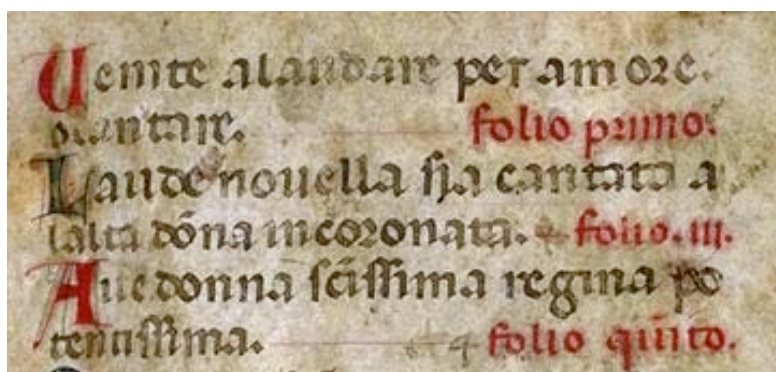 Uenite alaudare per amore.
cantare. folio primo.
Laude nouella sia cantata a
lalta dōna incoronata. folio. III.
Aue donna scīssima regina po
tentissima. folio quīto.